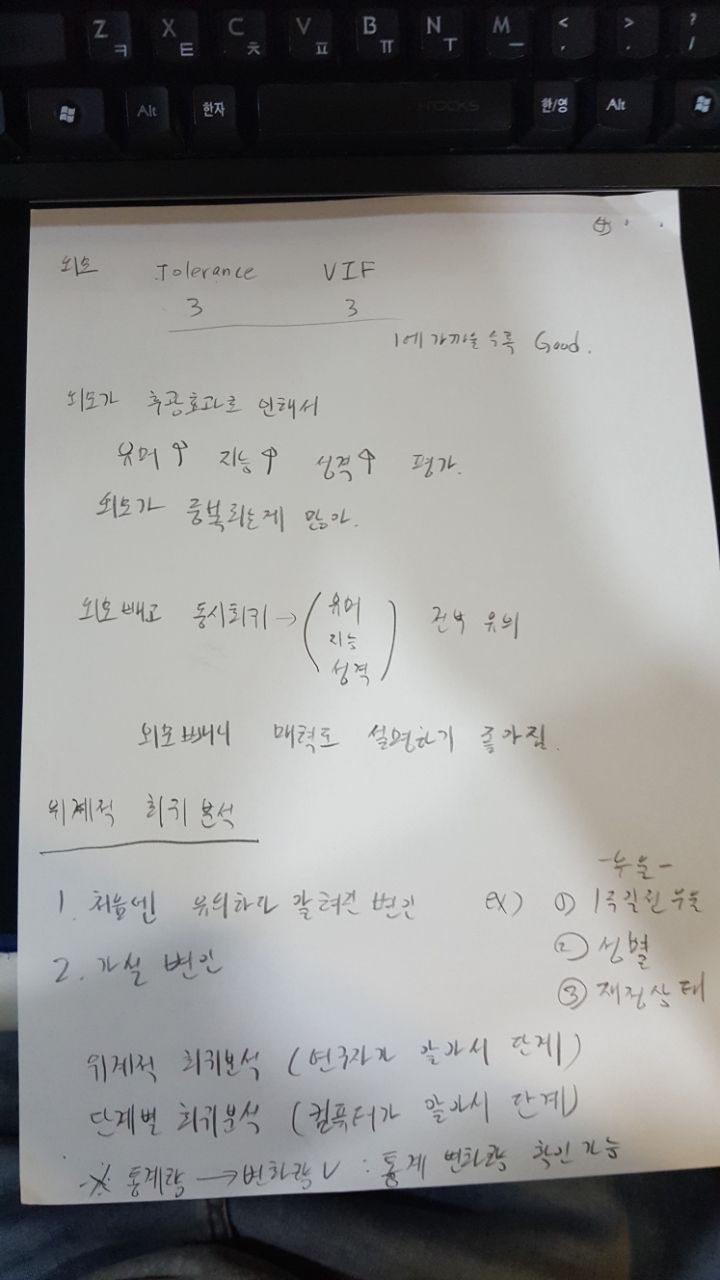 Z ㅋ X ㅌ C ㅊ V ㅍ B ㅠ N ㅜ M ㅡ < , > . ? /
Alt 한자 한/영 Alt
④
외모 Tolerance VIF
3 3
1에 가까울수록 Good.
외모가 후광효과로 인해서
유머↑ 지능↑ 성격↑ 평가.
외모가 중복되는게 많아.
외모빼고 동시회귀→(유머
지능
성격) 전부 유의
외모빼니 매력도 설명하기 좋아짐.
위계적 회귀분석
-우울-
1. 처음엔 유의하다 알려진 변인 ex) ① 1주일전 우울
2. 가설 변인 ② 성별
③ 재정상태
위계적 회귀분석 (연구자가 알아서 단계)
단계별 회귀분석 (컴퓨터가 알아서 단계)
※ 통계량→변화량 V : 통계 변화량 확인 가능